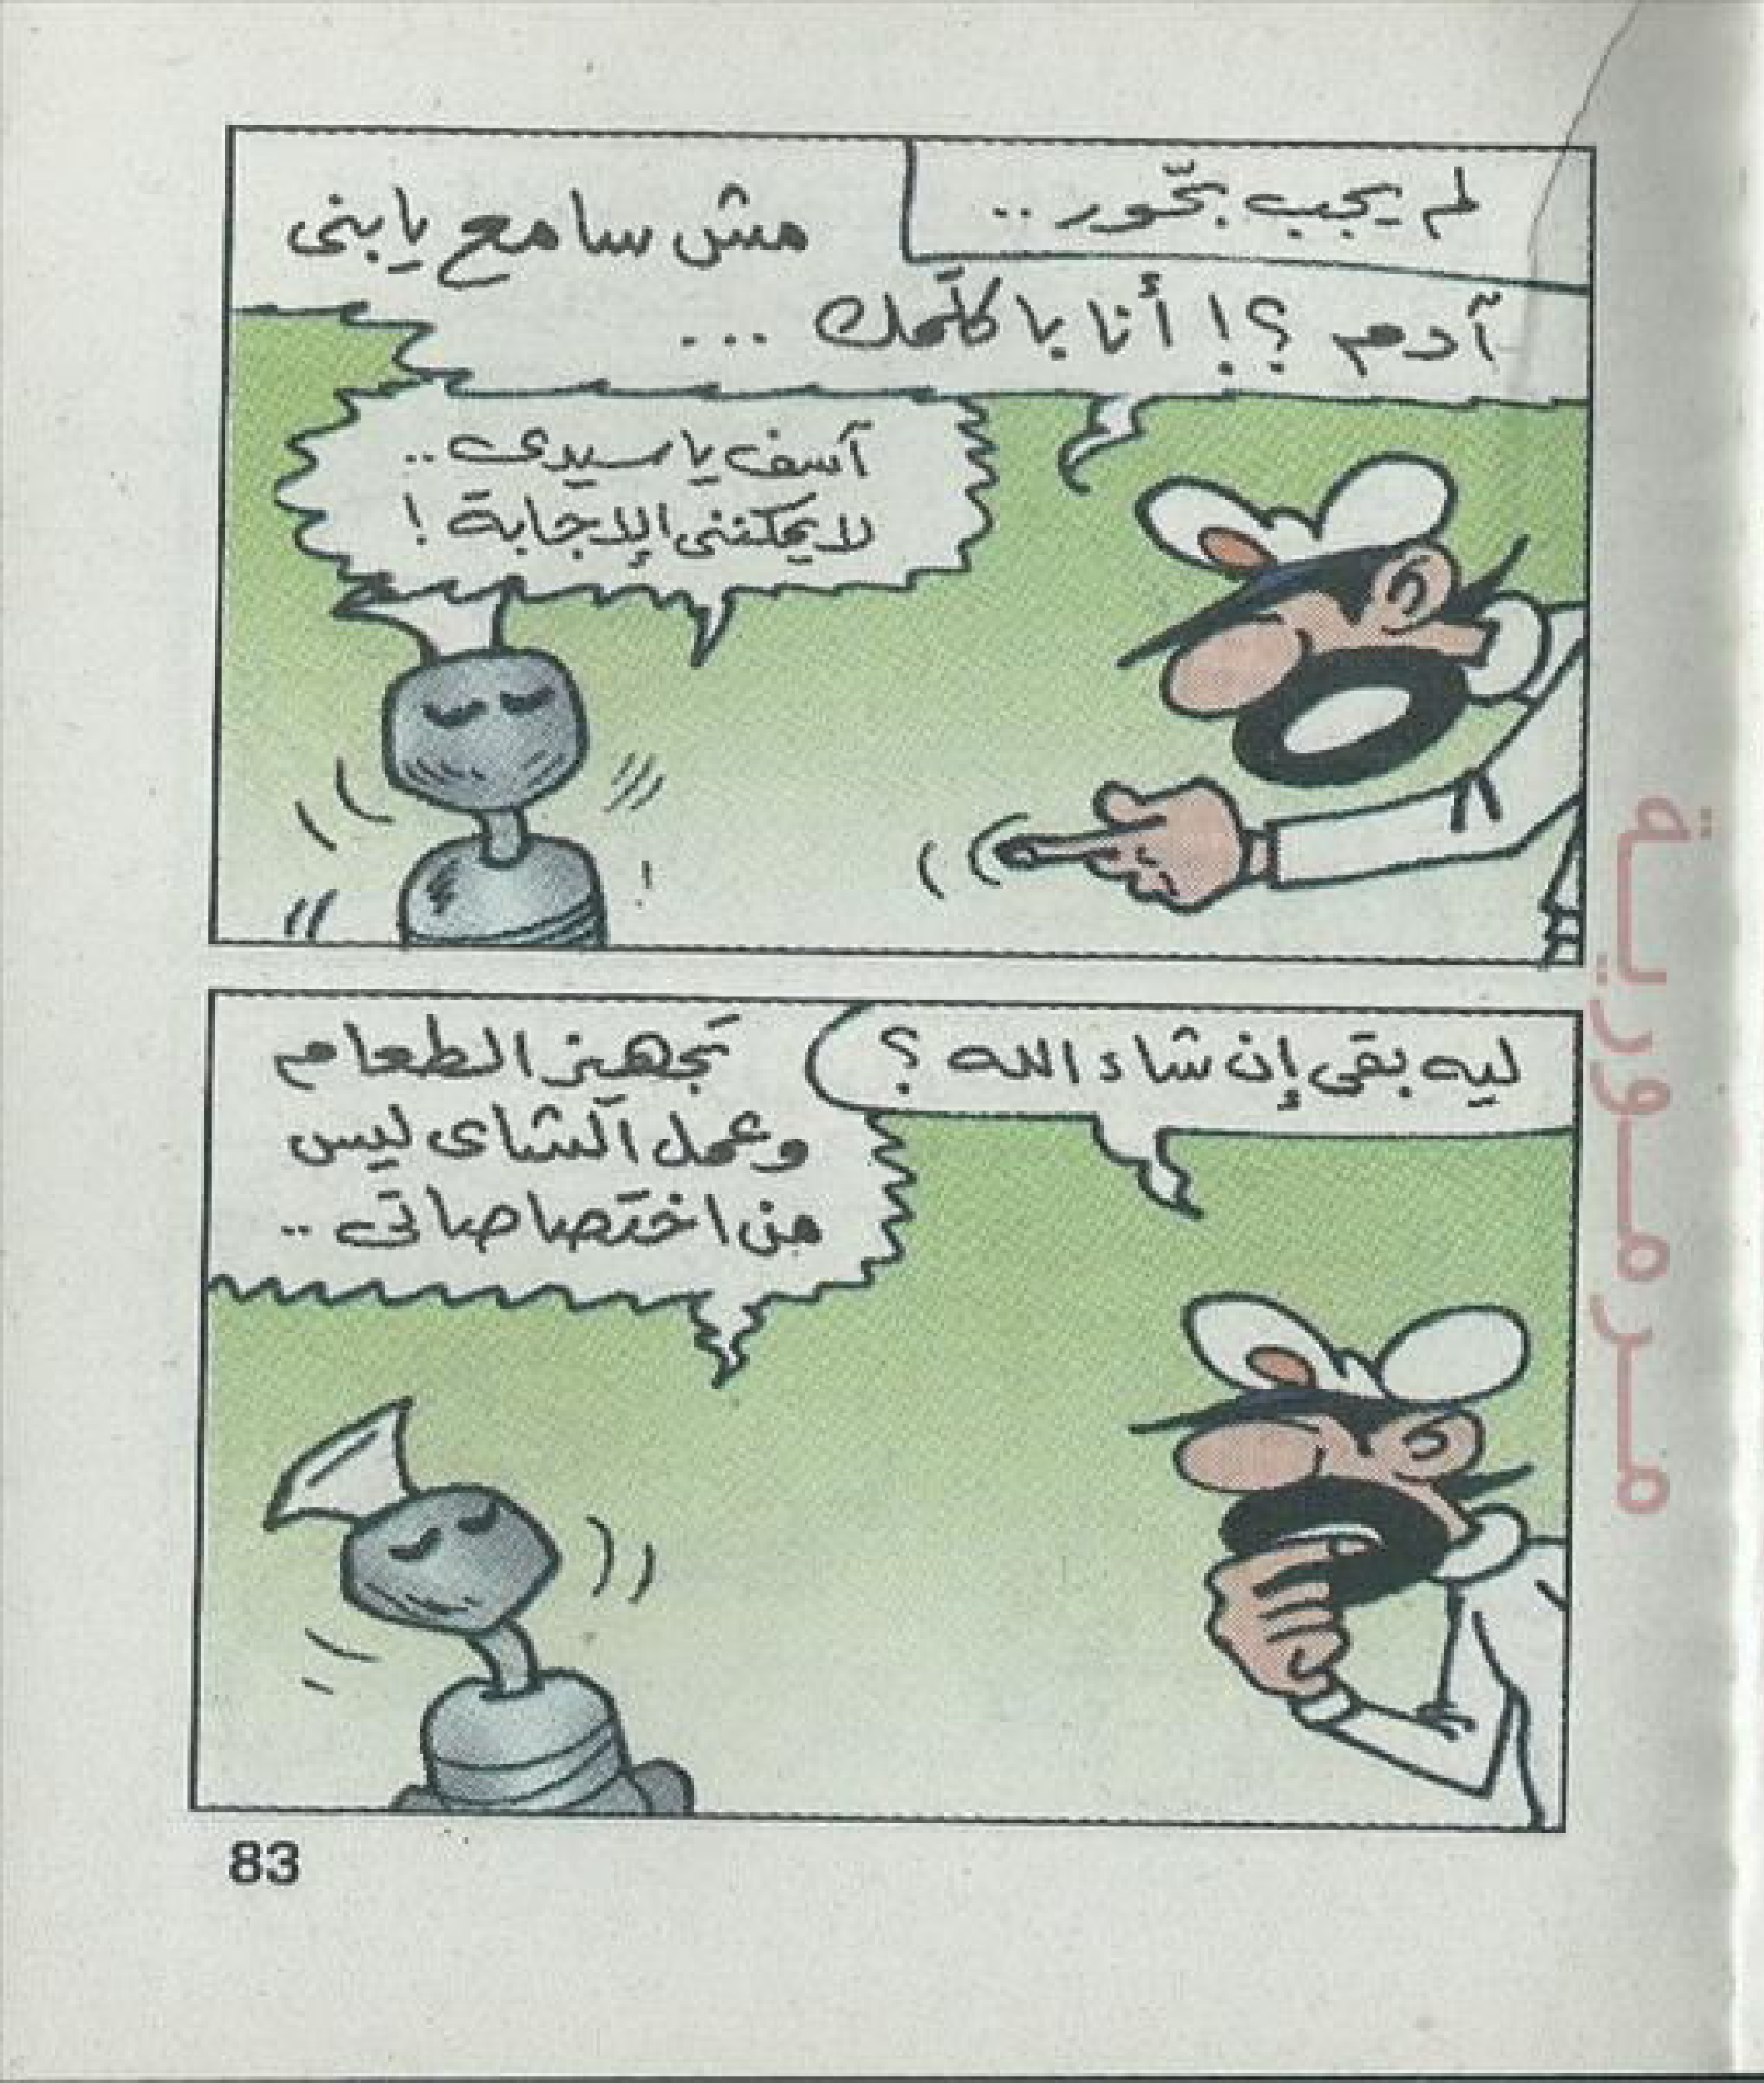 لم يجب بحّور ..
مش سامع يابنى
آدم ؟! أنا باكلّمك ...
آسف ياسيدى ..
لايمكننى الإجابة !
ليه بقى إن شاء الله ؟
تجهيز الطعام
وعمل الشاى ليس
من اختصاصاتى ..
مرمورية
83